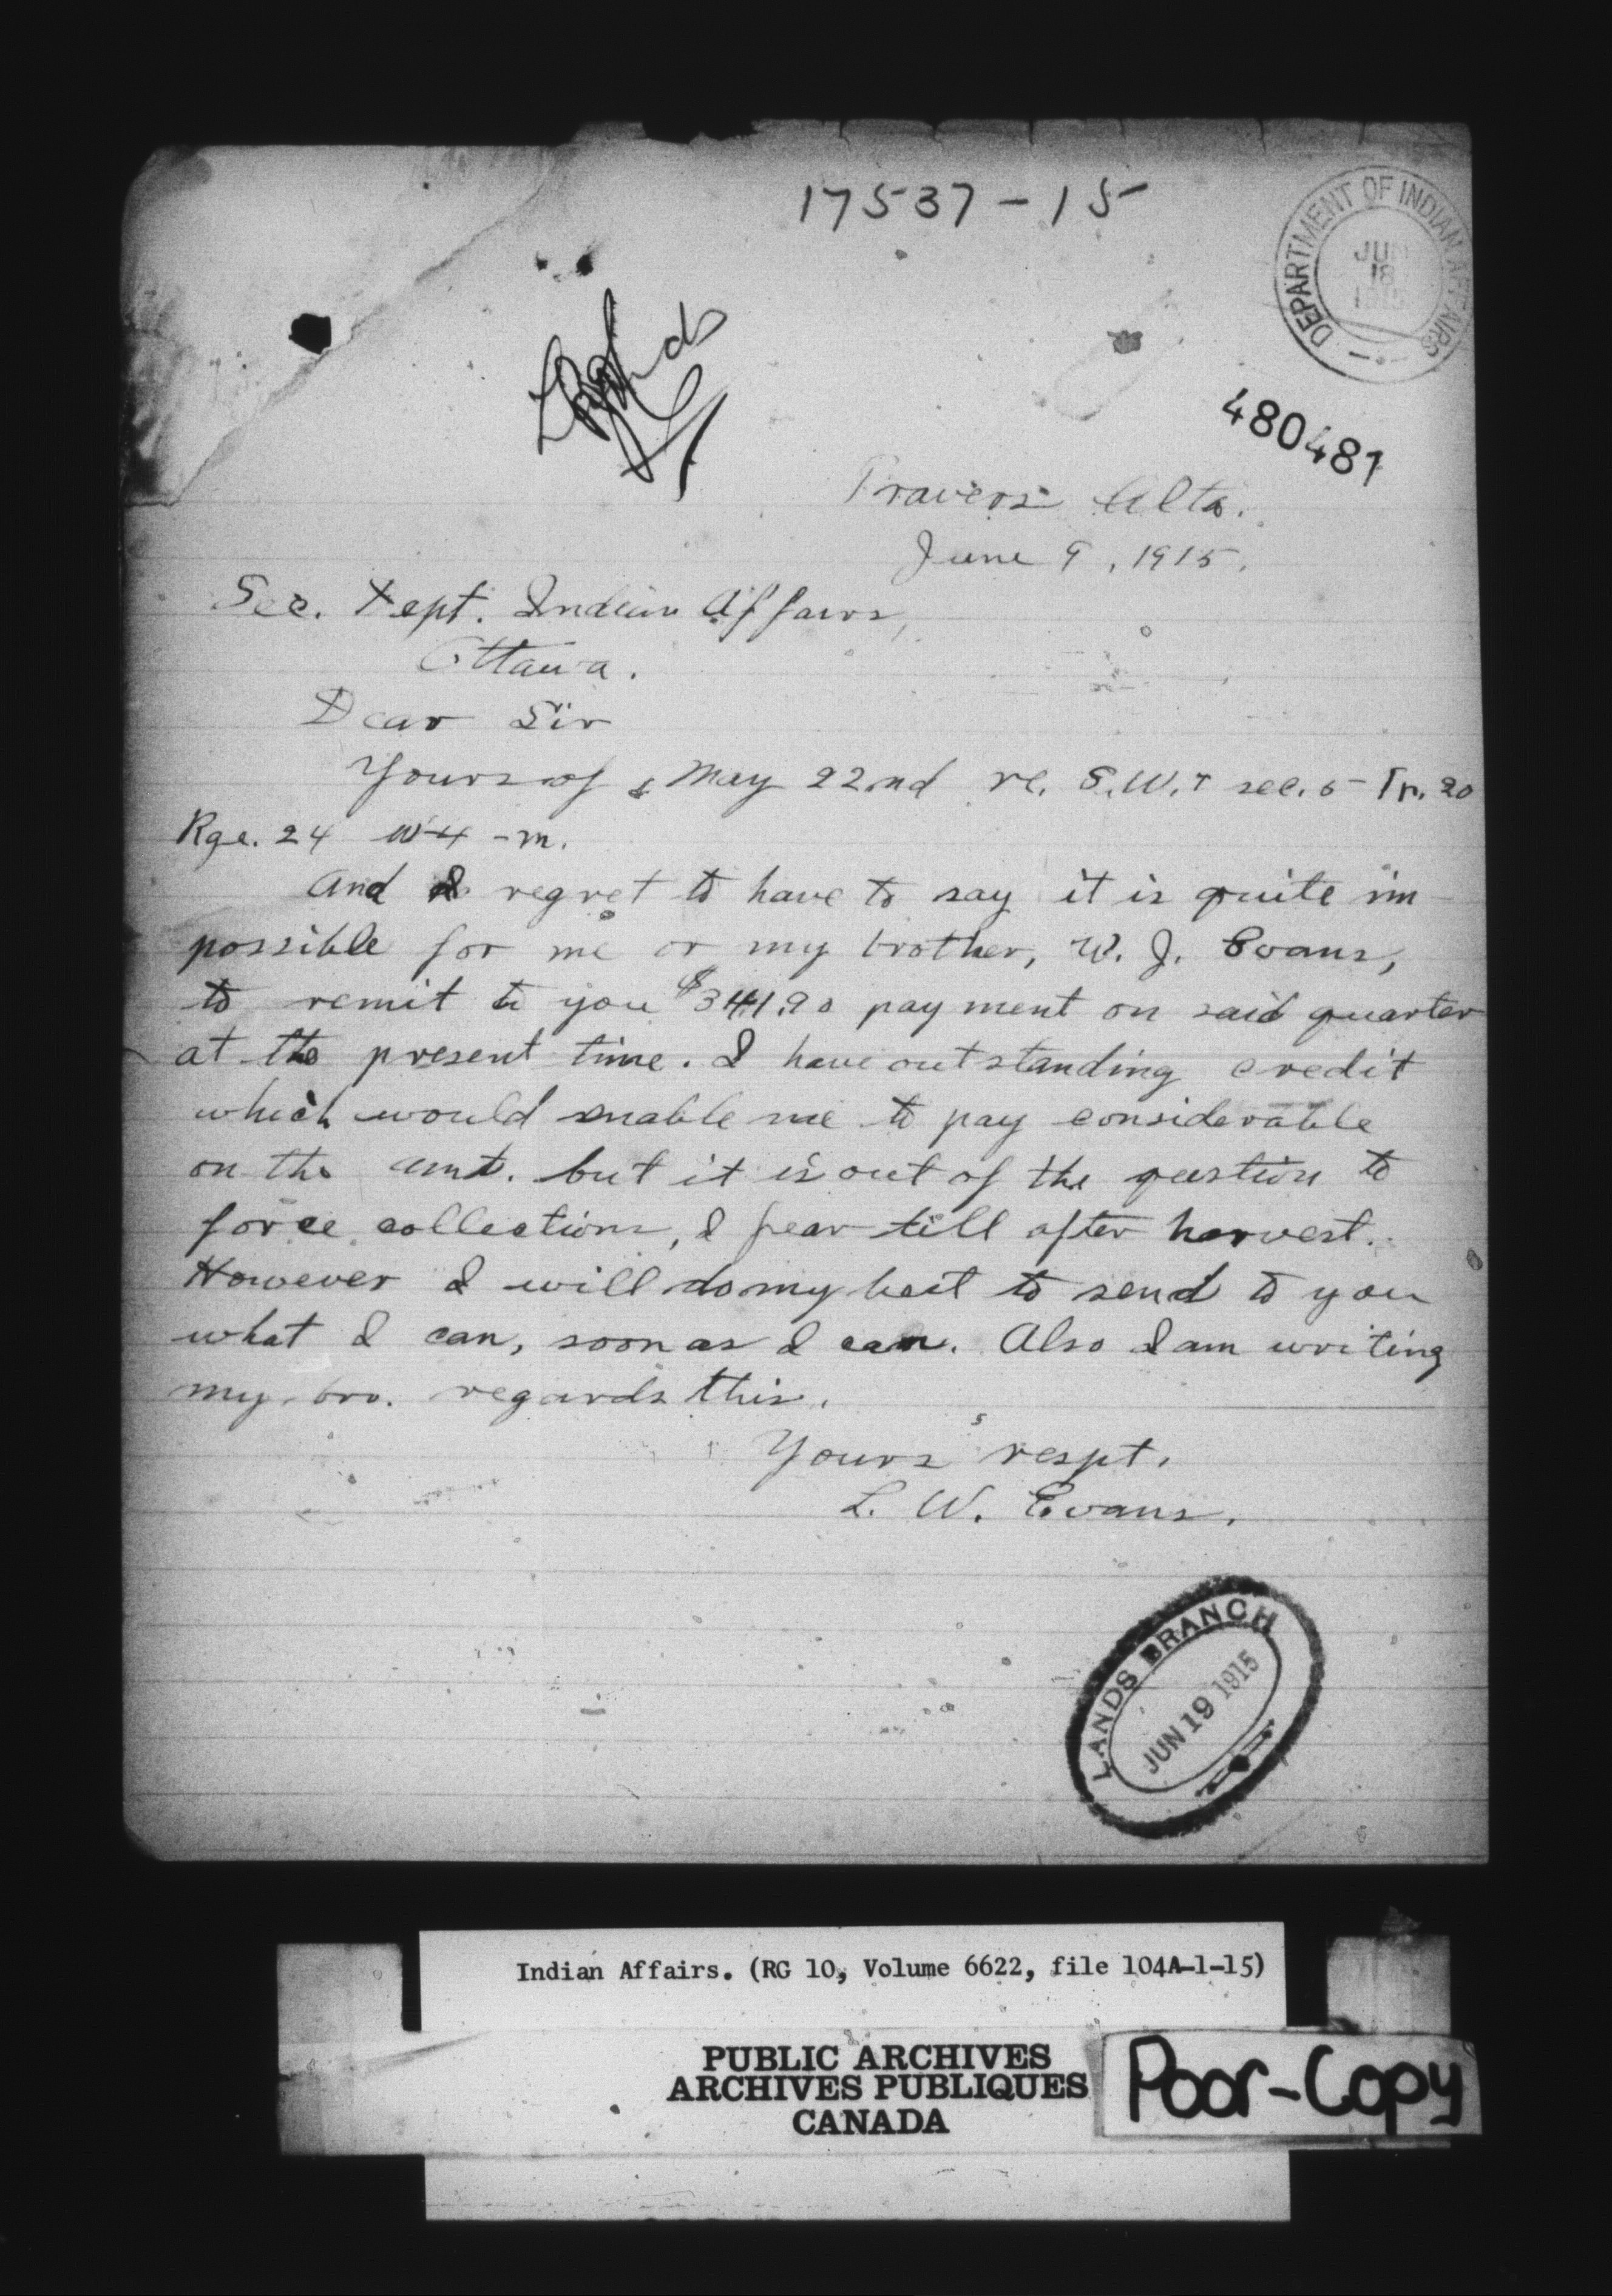 17537-15
DEPARTMENT OF INDIAN AFFAIRS
JUN
18
1915
480481
Travers Alta.
June 9, 1915.
Sec. Dept. Indian Affairs,
Ottawa.
Dear Sir
Yours of May 22nd re. S.W. sec. 5 - Tp. 20
Rge. 24 W 4 - m.
And I regret to have to say it is quite im-
possible for me or my brother, W. J. Evans,
to remit to you $341.90 payment on said quarter
at the present time. I have outstanding credit
which would enable me to pay considerable
on the amt. but it is out of the question to
force collections, I fear till after harvest.
However I will do my best to send to you
what I can, soon as I can. Also I am writing
my bro. regards this.
Yours respt.
L. W. Evans.
LANDS BRANCH
JUN 19 1915
Indian Affairs. (RG 10, Volume 6622, file 104A-1-15)
PUBLIC ARCHIVES
ARCHIVES PUBLIQUES
CANADA
Poor-Copy